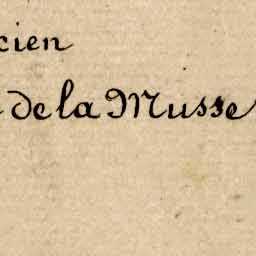 cien
de la Musse